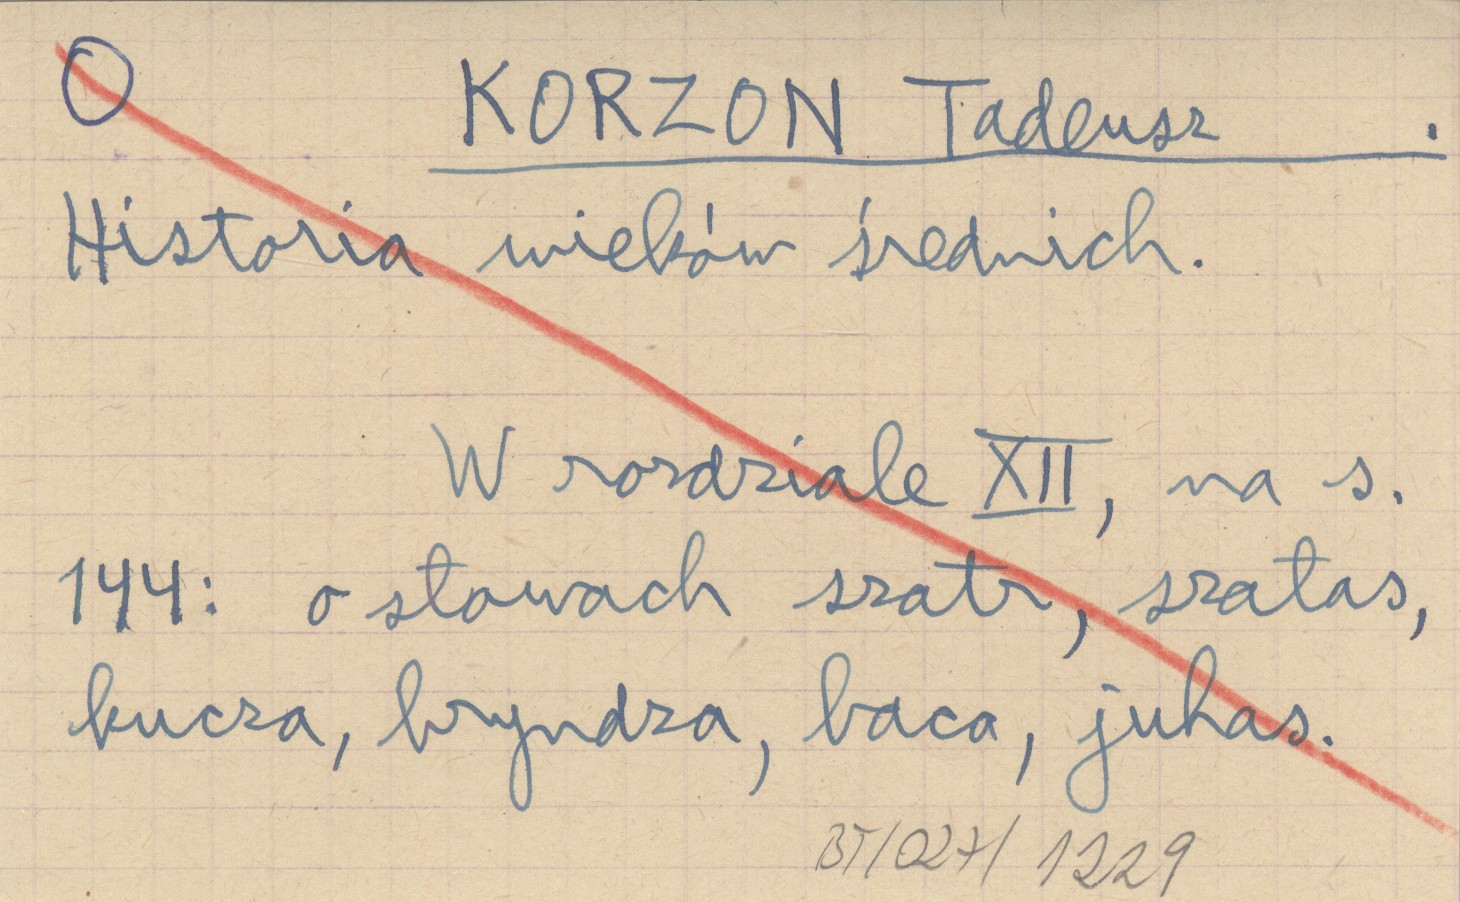 O KORZON Tadeusz .
Historia wieków średnich.
W rozdziale XII, na s.
144: o słowach szatr, szałas,
kucza, bryndza, baca, juhas.
BT/027/ 1229